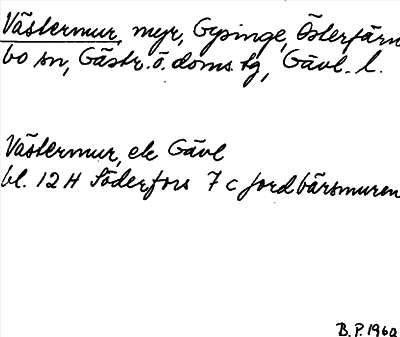 Västermur, myr, Gysinge, Österfärn
bo sn, Gästr. ö. doms. tg, Gävl. l.
Västermur, ek Gävl
bl. 12 H Söderfors 7 c Jordbärsmuren
B. P. 1960